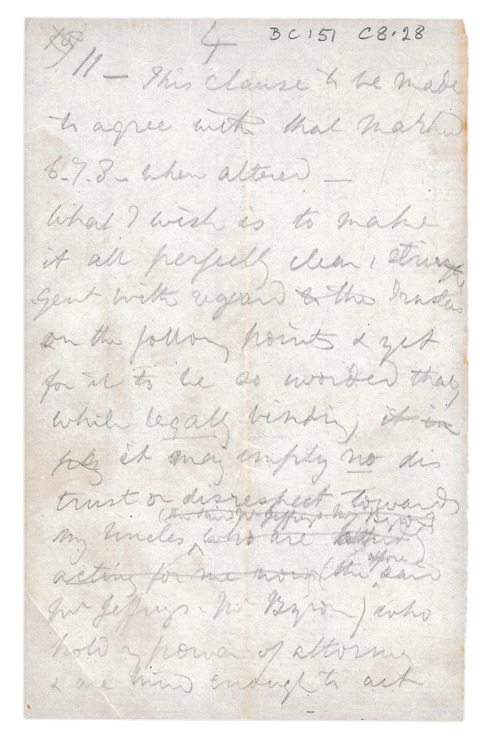 4 BC151 C8.28
11 — This clause to be made
to agree with that marked
6.7.8 — when altered —
What I wish is to make
it all perfectly clear, strin
gent with regard to the Trustees
on the follow points & yet
for it to be so worded that,
while legally binding, it im
ply it may imply no dis
trust or disrespect towards
(the said Mr Jeffreys Mr Byron)
my Uncles, who are
acting for me now (the afore said
Mr Jeffreys. Mr Byron) who
hold my power of attorney
& are kind enough to act